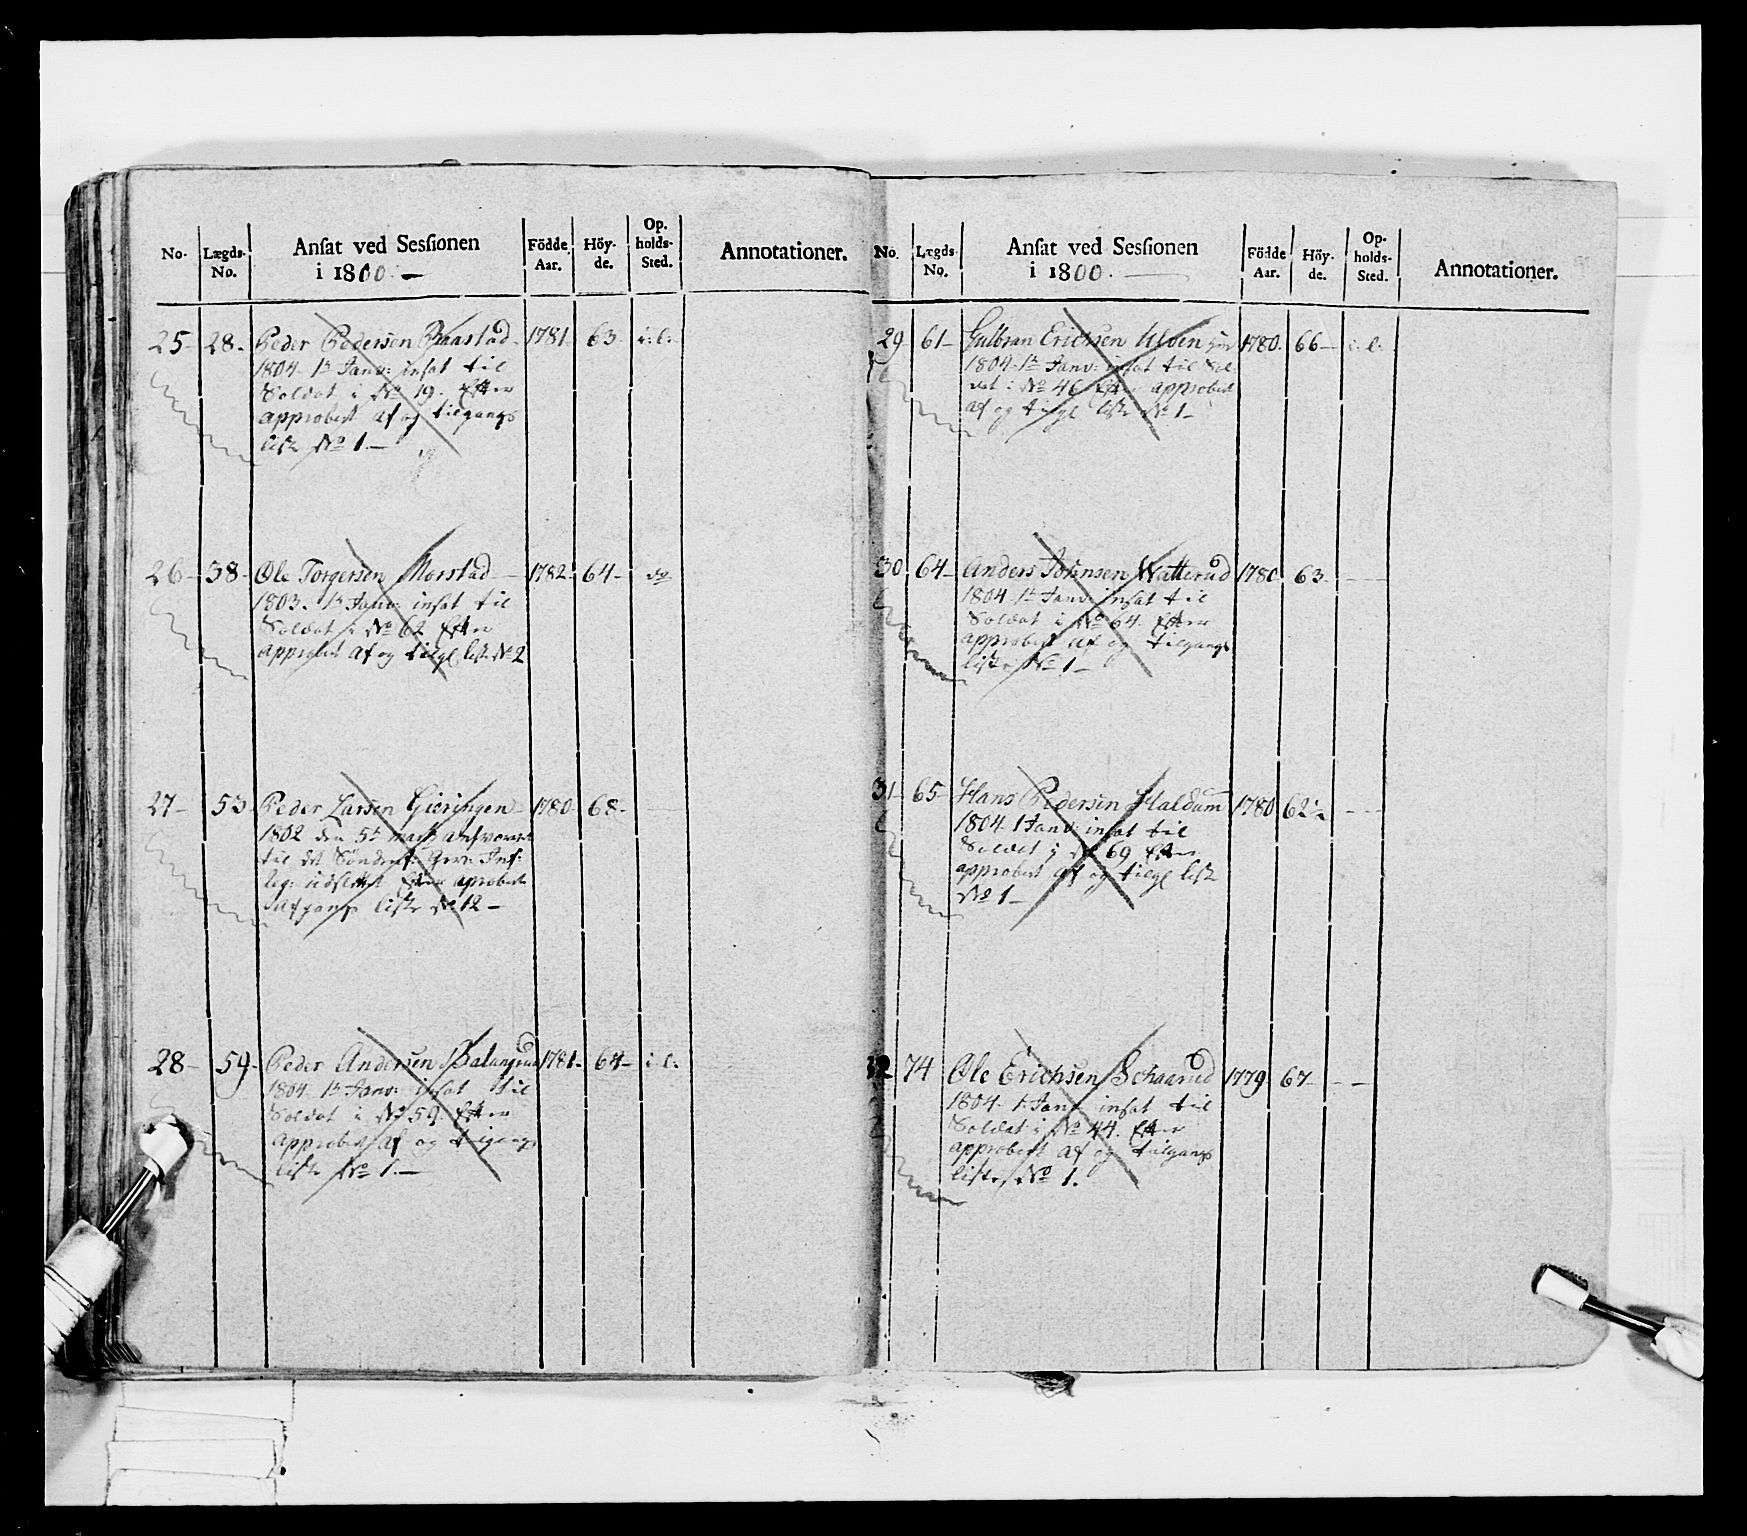 No. Lægds- No. Ansat ved Sessionen i 1800. — Födde Aar. Höy- de. Op- holds- Sted. Annotationer.
25 – 28 – Peder Pedersen Baastad – 1781 – 63 – i: l:
1804 – 1te Janv: insat til
Soldat i No 19. Efter
approbert af og tilgangs
liste No 1 —
26 – 38 – Ole Torgersen Morstad — 1782 – 64 – do
1803 – 1te Janv: insat til
Soldat i No 62 Efter
approbert af og tilg: liste No 2
27 – 53 – Peder Larsen – 1780 – 68 –
1802 den 5te
til det Inf:
Reg: Efter aprobert
Afgangs liste No 12 —
28 – 59 – Peder Andersen 1781 – 64 – i: l:
1804 – 1te Janv: insat til
Soldat i No 59. Efter
approbert af og tilgangs
liste No 1. —
No. Lægds- No. Ansat ved Sessionen i 1800. — Födde Aar. Höy- de. Op- holds- Sted. Annotationer.
29 61 – Gulbran Erichsen Ulven 1780. 66 – i: l:
1804 – 1te Janv: insat til Sol-
dat i No 46 Efter approbert
af og tilg: liste No 1 –
30 64 – Anders Johnsen Watterud 1780 63 – —
1804 – 1te Janv: insat til
Soldat i No 64. Efter
approbert af og tilgangs
liste No 1 –
31 – 65 – Hans Pedersen Haldum 1780 62½ – – –
1804 – 1 Janv: insat til
Soldat i No 69 Efter
approbert af og tilg: liste
No 1 –
32 74 Ole Erichsen Schaarud 1779 67 – – —
1804 – 1. Janv insat til
Soldat i No 44. Efter
approbert af og tilgangs
liste No 1.